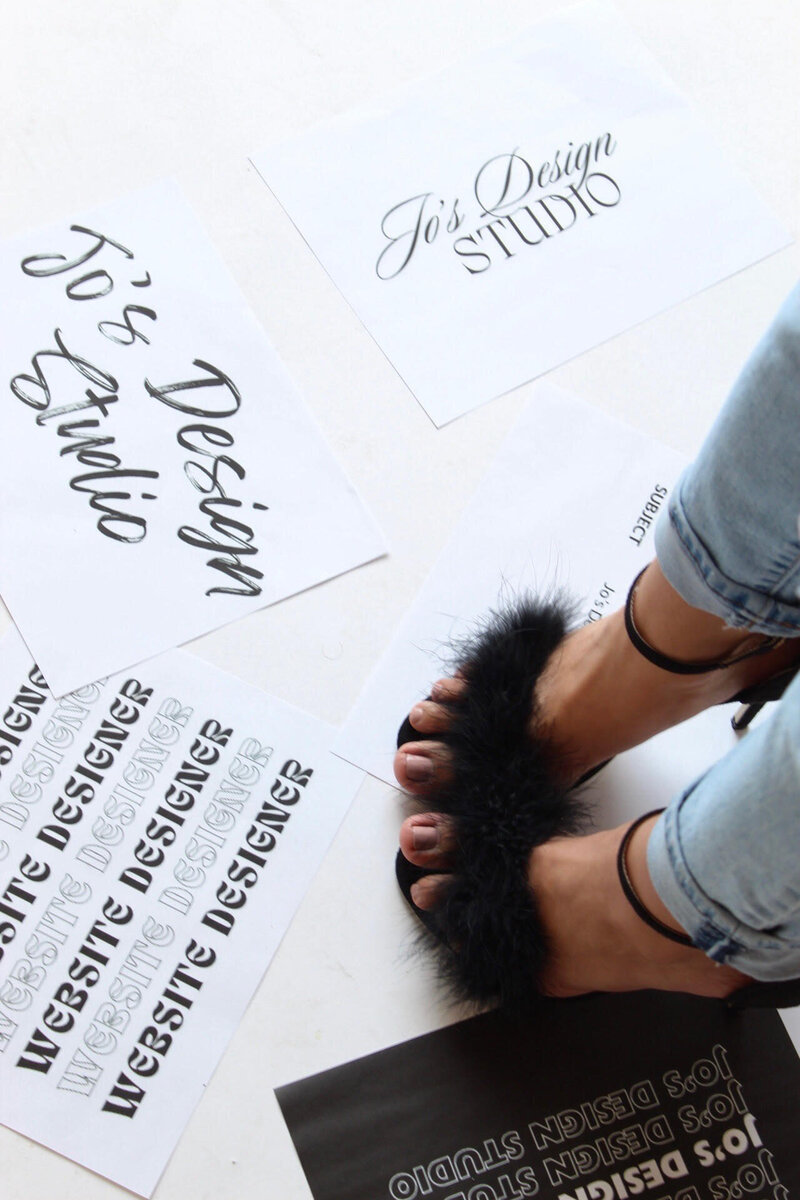 Jo's Design
STUDIO
Jo's Design
Studio
SUBJECT
Jo's De
DESIGNE
SITE DESIGNER
WEBSITE DESIGNER
WEBSITE DESIGNER
WEBSITE DESIGNER
WEBSITE DESIGNER
JO'S DESIGN STUDIO
JO'S DESIGN STUDIO
JO'S DESIGN